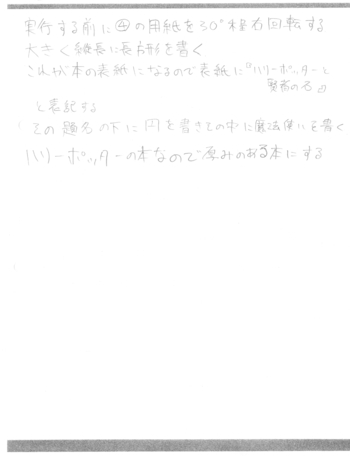 実行する前に④の用紙を30°程右回転する
大きく縦長に長方形を書く
これが本の表紙になるので表紙に『ハリーポッターと
賢者の石』
と表記する
その題名の下に円を書きその中に魔法使いを書く
ハリーポッターの本なので厚みのある本にする